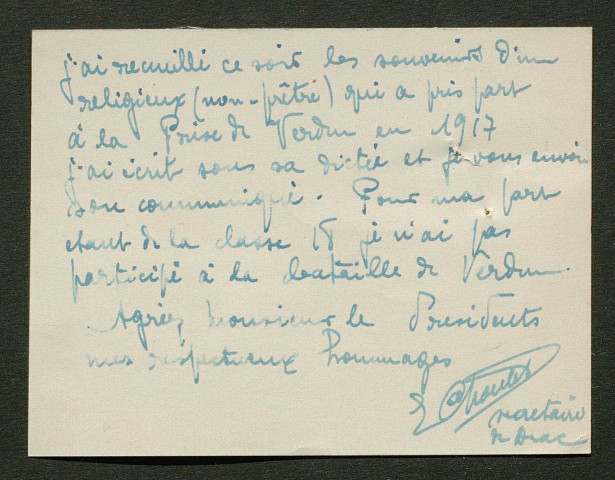 j'ai recueilli ce soir les souvenirs d'un
religieux (non-prêtre) qui a pris part
à la Prise de Verdun en 1917
j'ai écrit sous sa dictée et je vous envoie
son communiqué. Pour ma part
étant de la classe 18 je n'ai pas
participé à la bataille de Verdun.
Agréez Monsieur le Présidents
mes respectueux hommages
secretaire